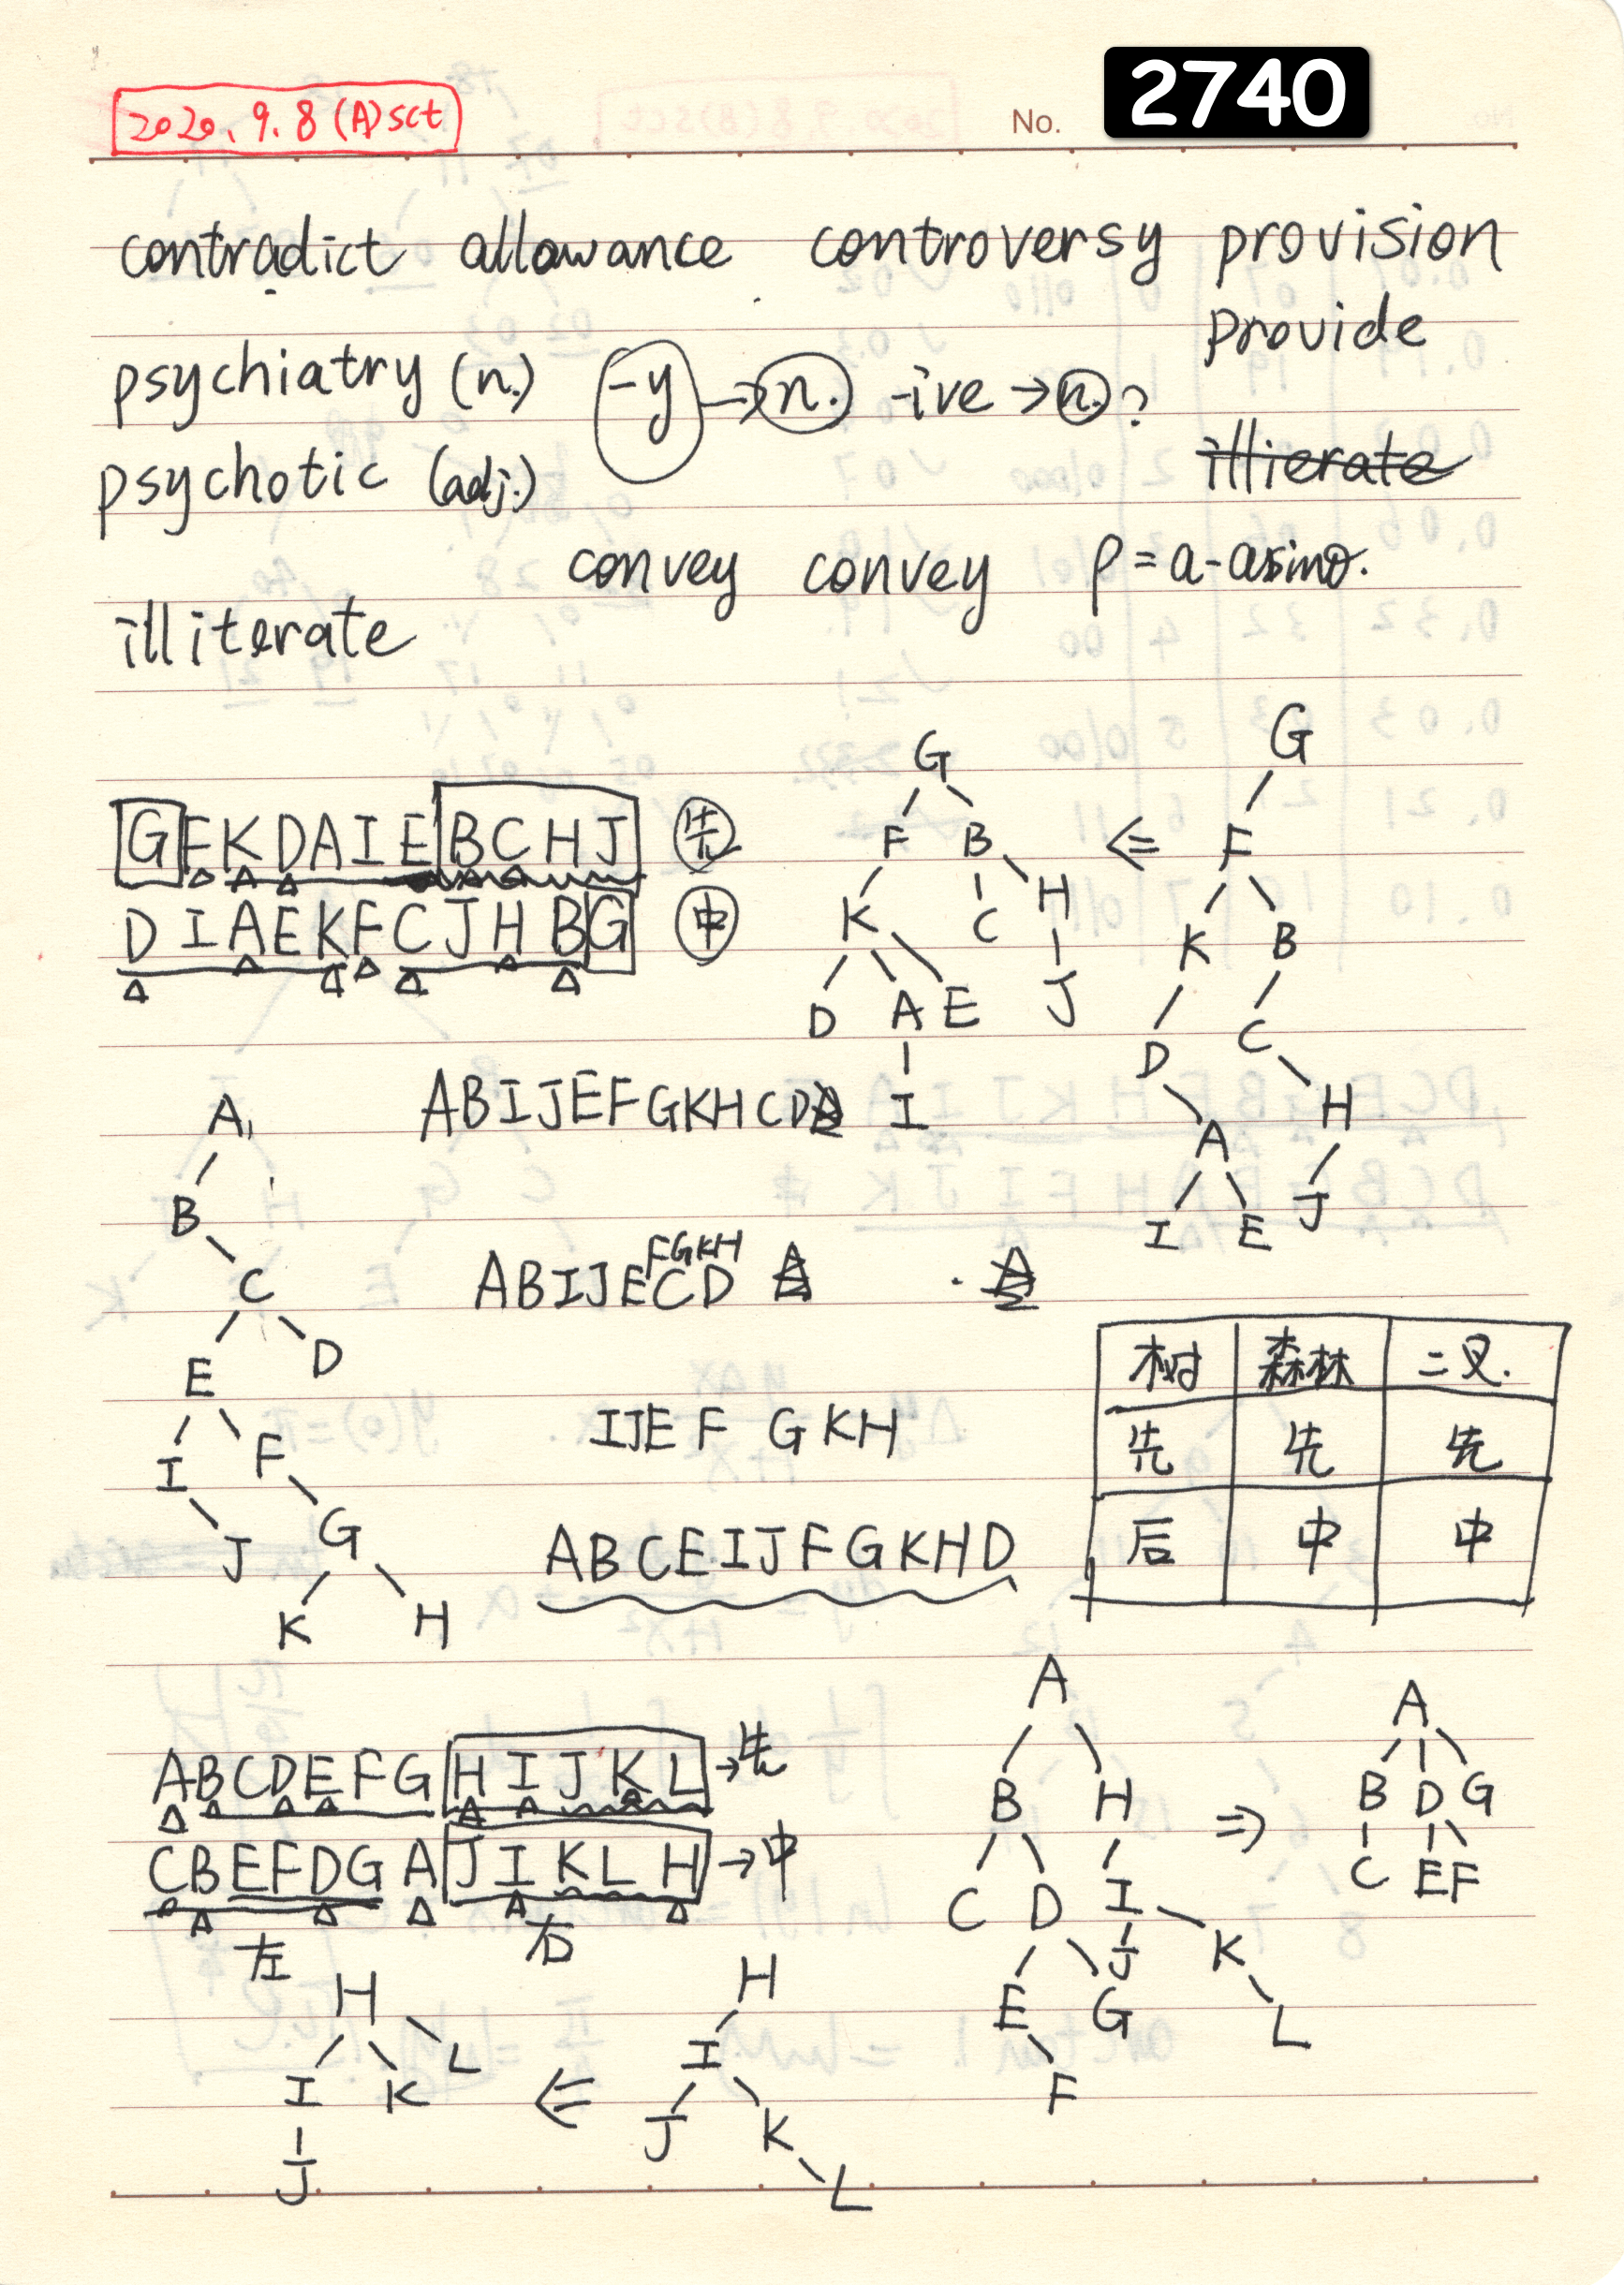 2020.9.8 (A) sct
No. 2740
contradict allowance controversy provision
provide
psychiatry (n.) -y → n. -ive → n.?
psychotic (adj.) illierate
convey convey ρ = a - asinθ.
illiterate
GFKDAIEBCHJ 先
DIAEKFCJHBG 中
G
F B
K C H
D A E J
I
⇐
G
F
K B
D C
A H
I E J
ABIJEFGKHCD
A
B
C
E D
I F
J G
K H
FGKH
ABIJECD
IJEF GKH
ABCEIJFGKHD
树 森林 二叉.
先 先 先
后 中 中
ABCDEFGHIJKL → 先
CBEFDGAJIKLH → 中
左 右
A
B H
C D I
J K
E G L
F
⇒
A
B D G
C E F
H
I K L
J
⇐
H
I
J K
L